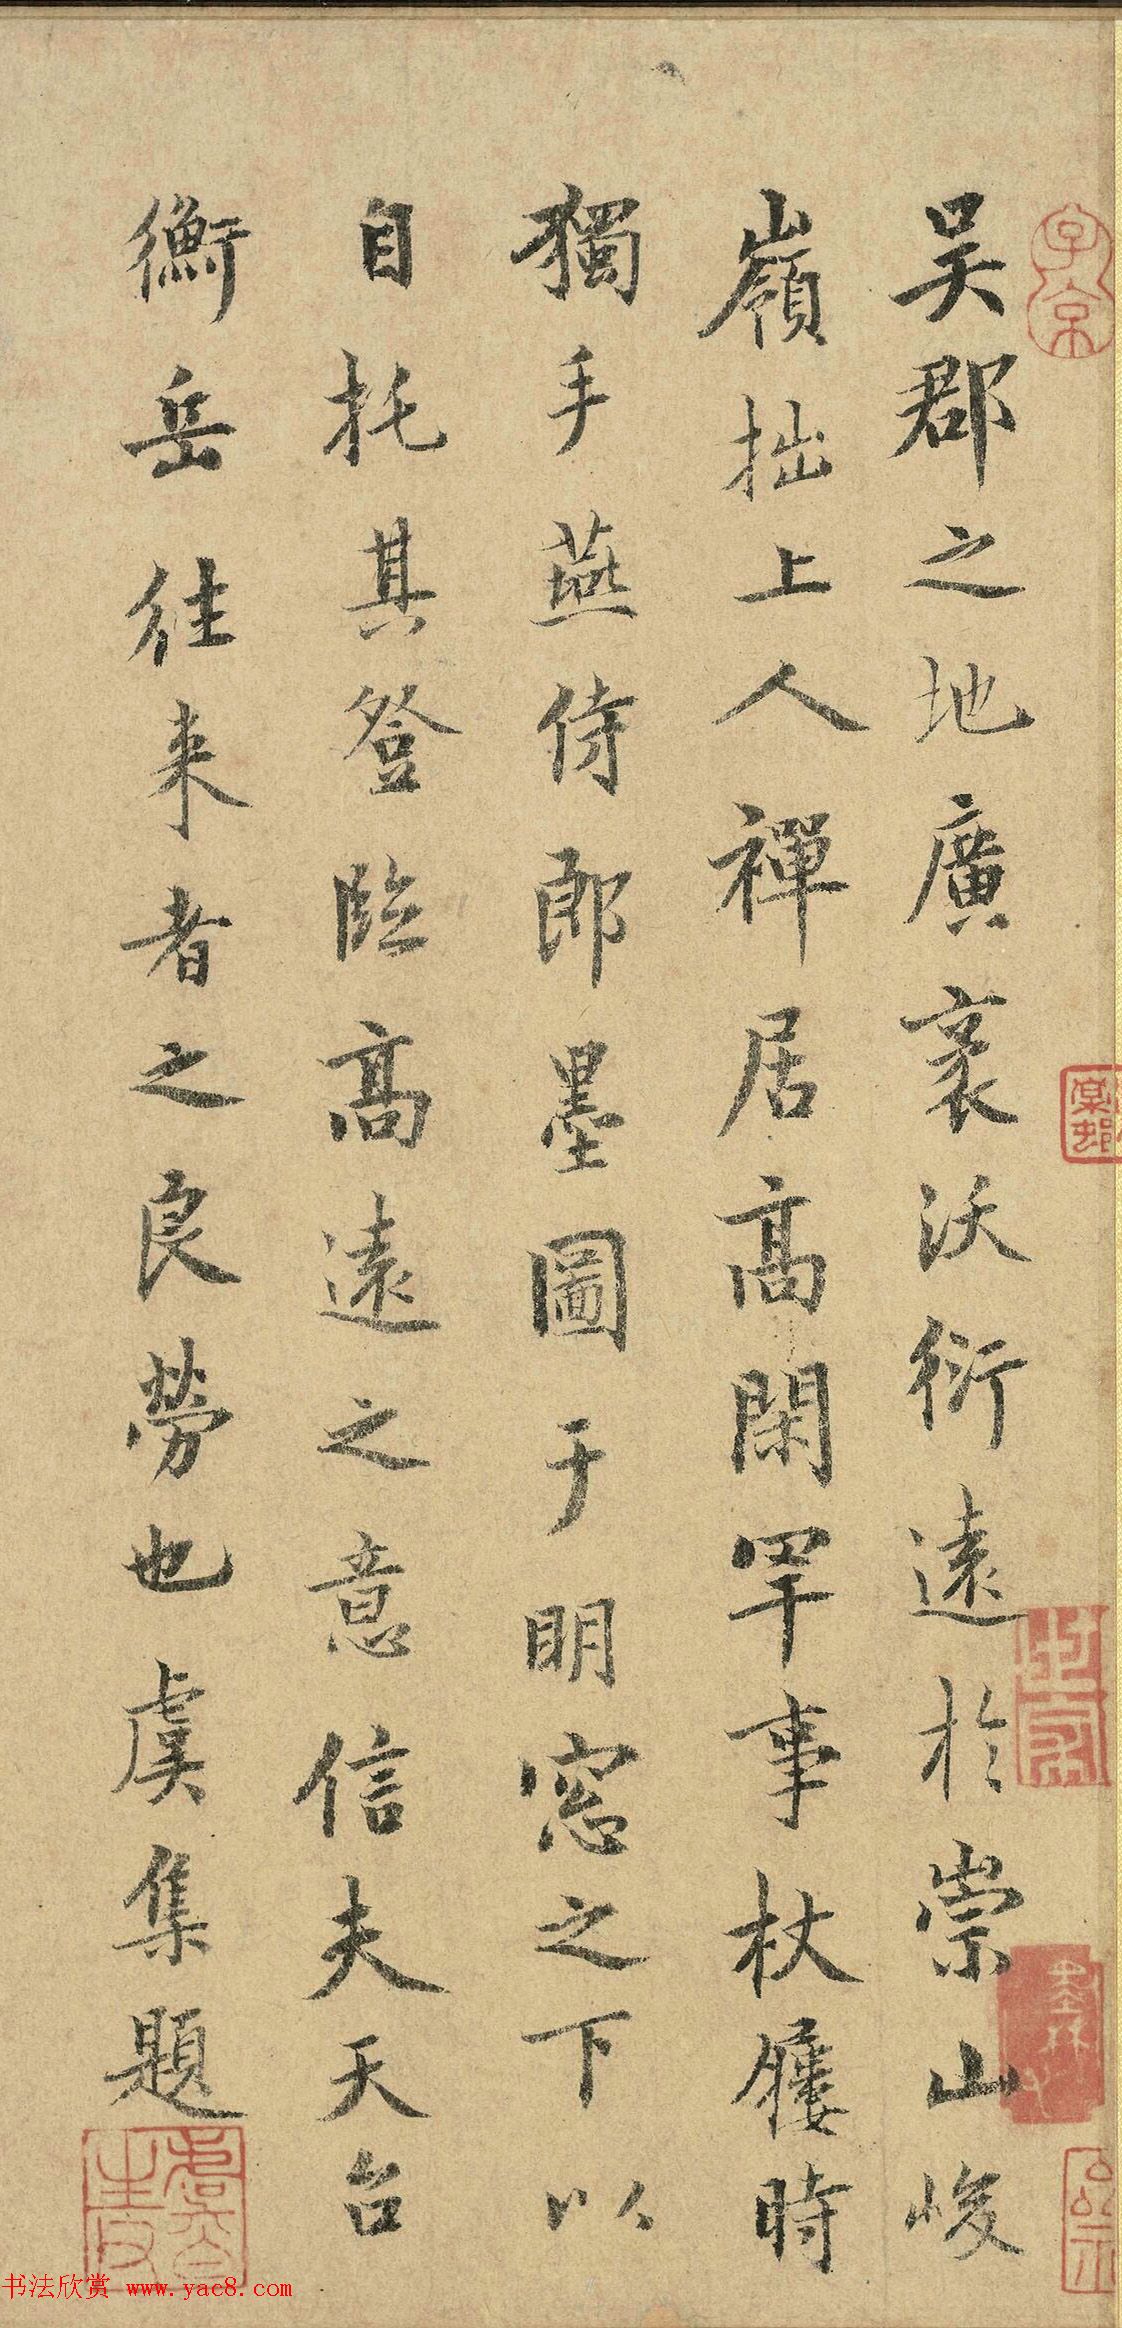 子京
棠邨
吳郡之地廣袤沃衍遠於崇山峻
嶺拙上人禪居高閑罕事杖屨時
獨手燕侍郎墨圖于明窓之下以
自托其登臨高遠之意信夫天台
衡岳往来者之良勞也虞集題
书法欣赏 www.yac8.com